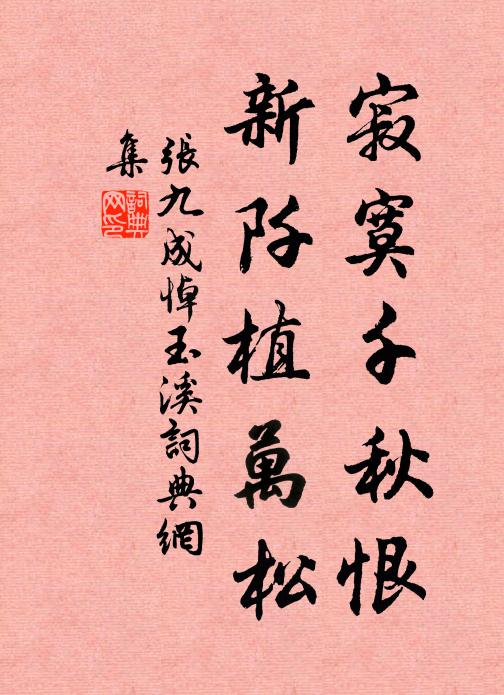 寂寞千秋恨
新阡植萬松
張九成悼玉溪詞典網
集
詞典
网印